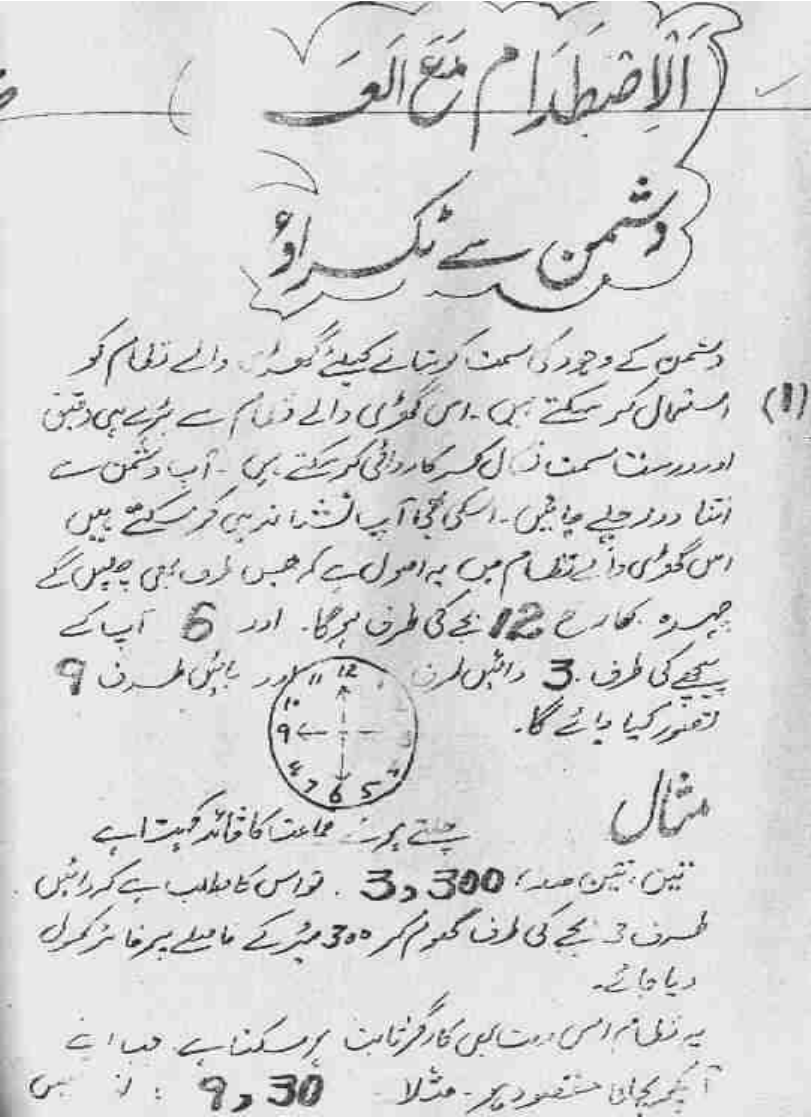 اَلْاِصْطِدَام مَعَ الْعَ
دشمن سے ٹکراؤ
دشمن کے وجود کی سمت کو بتانے کیلئے گھڑی والے نظام کو
(1) استعمال کر سکتے ہیں۔ اس گھڑی والے نظام سے بڑے ہی دقیق
اور درست سمت نکال کر کاروائی کر سکتے ہیں۔ آپ دشمن سے
اتنا دور چلے جائیں۔ اسکی بھی آپ نشاندہی کر سکتے ہیں
اس گھڑی والے نظام میں یہ اصول ہے کہ جس طرف بھی چلیں گے
چہرہ کا رخ 12 بجے کی طرف ہوگا۔ اور 6 آپ کے
پیچھے کی طرف۔ 3 دائیں طرف اور بائیں طرف 9
تصور کیا جائے گا۔
12
11
10
9
8
7
6
5
4
مثال
چلتے ہوئے جماعت کا قائد کہتا ہے
تین، تین صد، 3,300۔ تو اس کا مطلب ہے کہ دائیں
طرف 3 بجے کی طرف گھوم کر 300 میٹر کے فاصلے پر فائر کھول
دیا جائے۔
یہ نظام اس وقت بھی کارگر ثابت ہو سکتا ہے جب
مثلاً 9,30